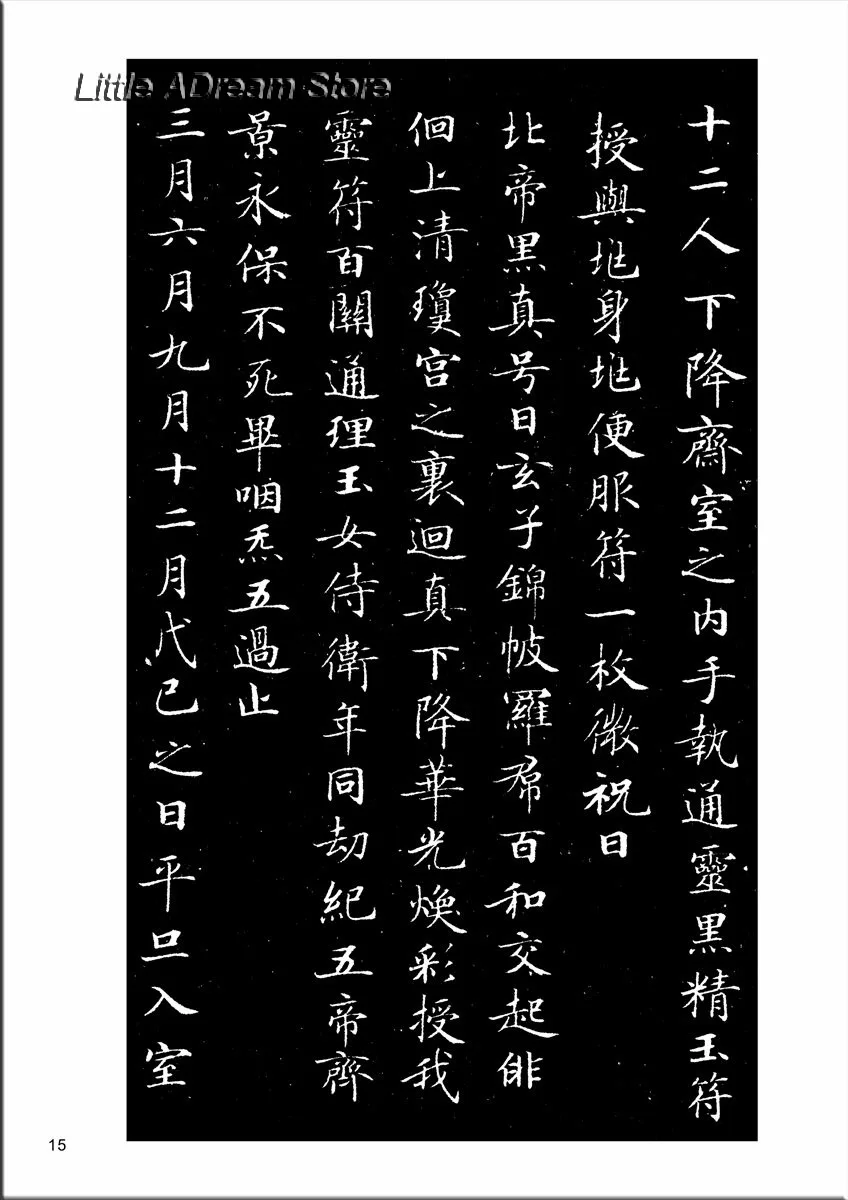 Little ADream Store
十二人下降齋室之内手執通靈黒精玉符
授與堆身堆便服符一枚微祝曰
北帝黒真号曰玄子錦帔羅帬百和交起俳
佪上清瓊宫之裏迴真下降華光煥彩授我
靈符百關通理玉女侍衛年同劫紀五帝齊
景永保不死畢咽炁五過止
三月六月九月十二月戊己之日平旦入室
15